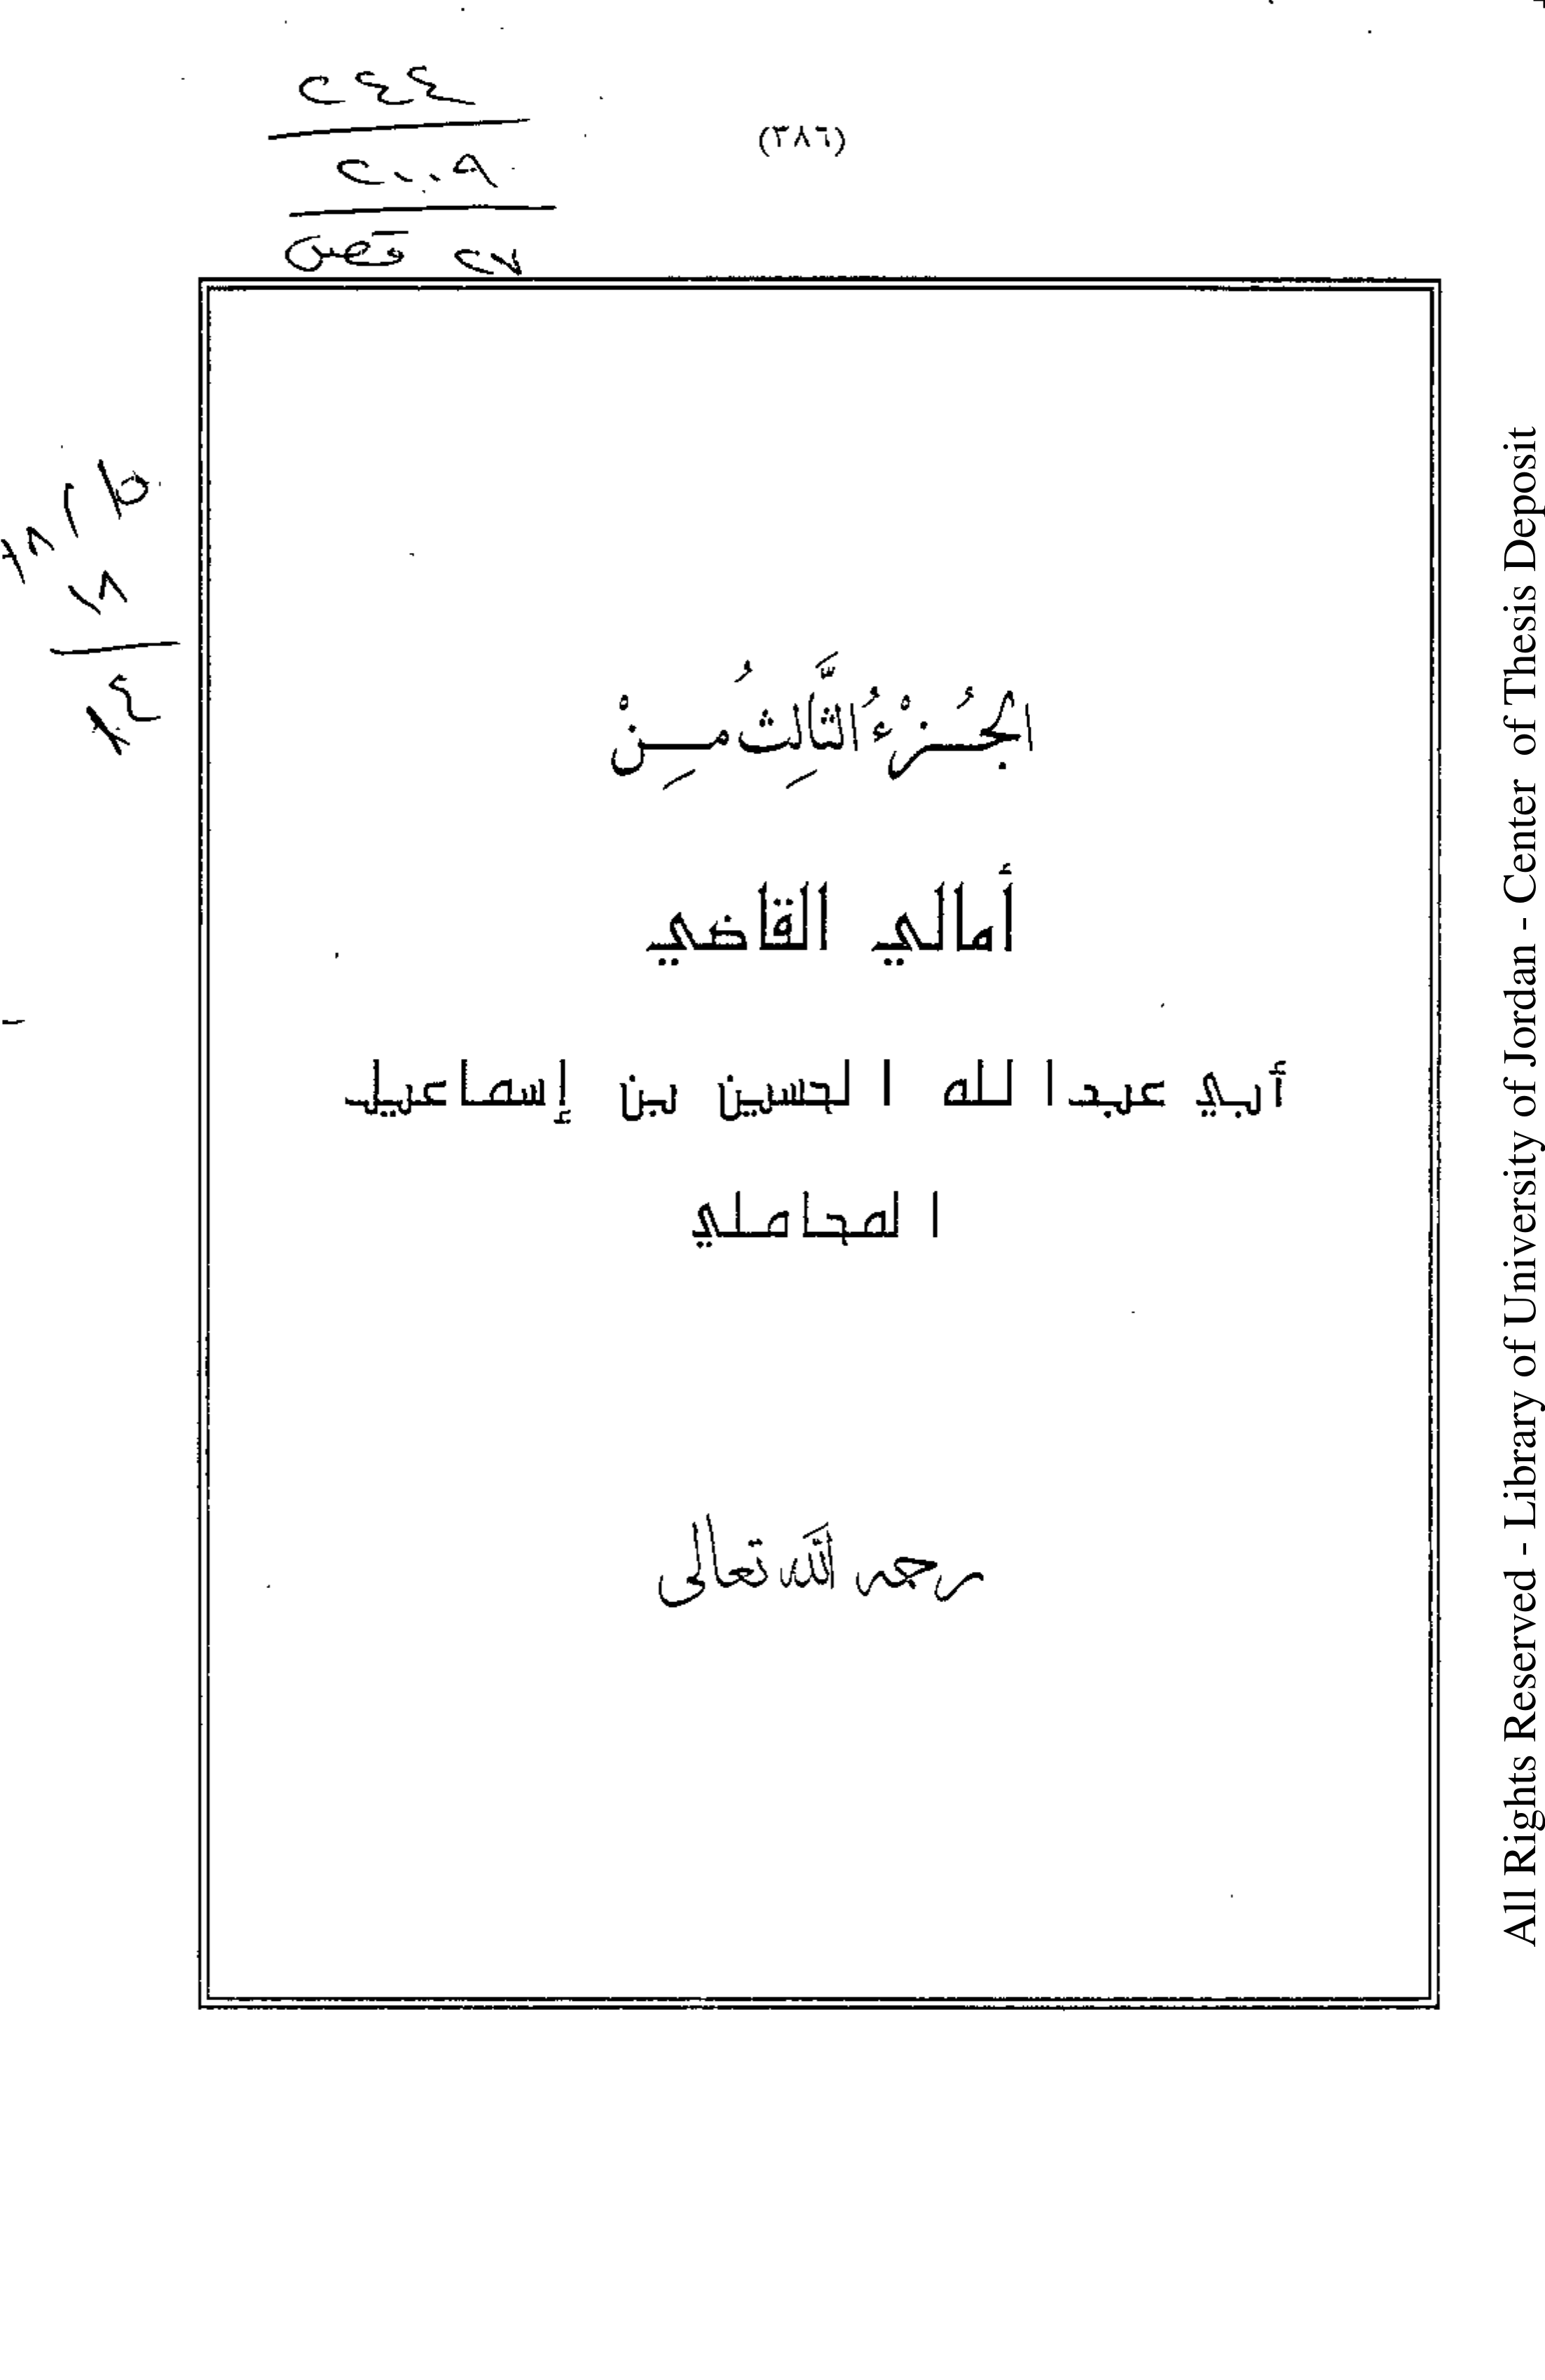 ٢٤٤
(٣٨٦)
٢٠٠٩
الجُزْءُ الثَّالِثُ مِنْ
أمالي القاضي
أبي عبدالله الحسين بن إسماعيل
المحاملي
رحمه اللَّه تعالى
All Rights Reserved - Library of University of Jordan - Center of Thesis Deposit